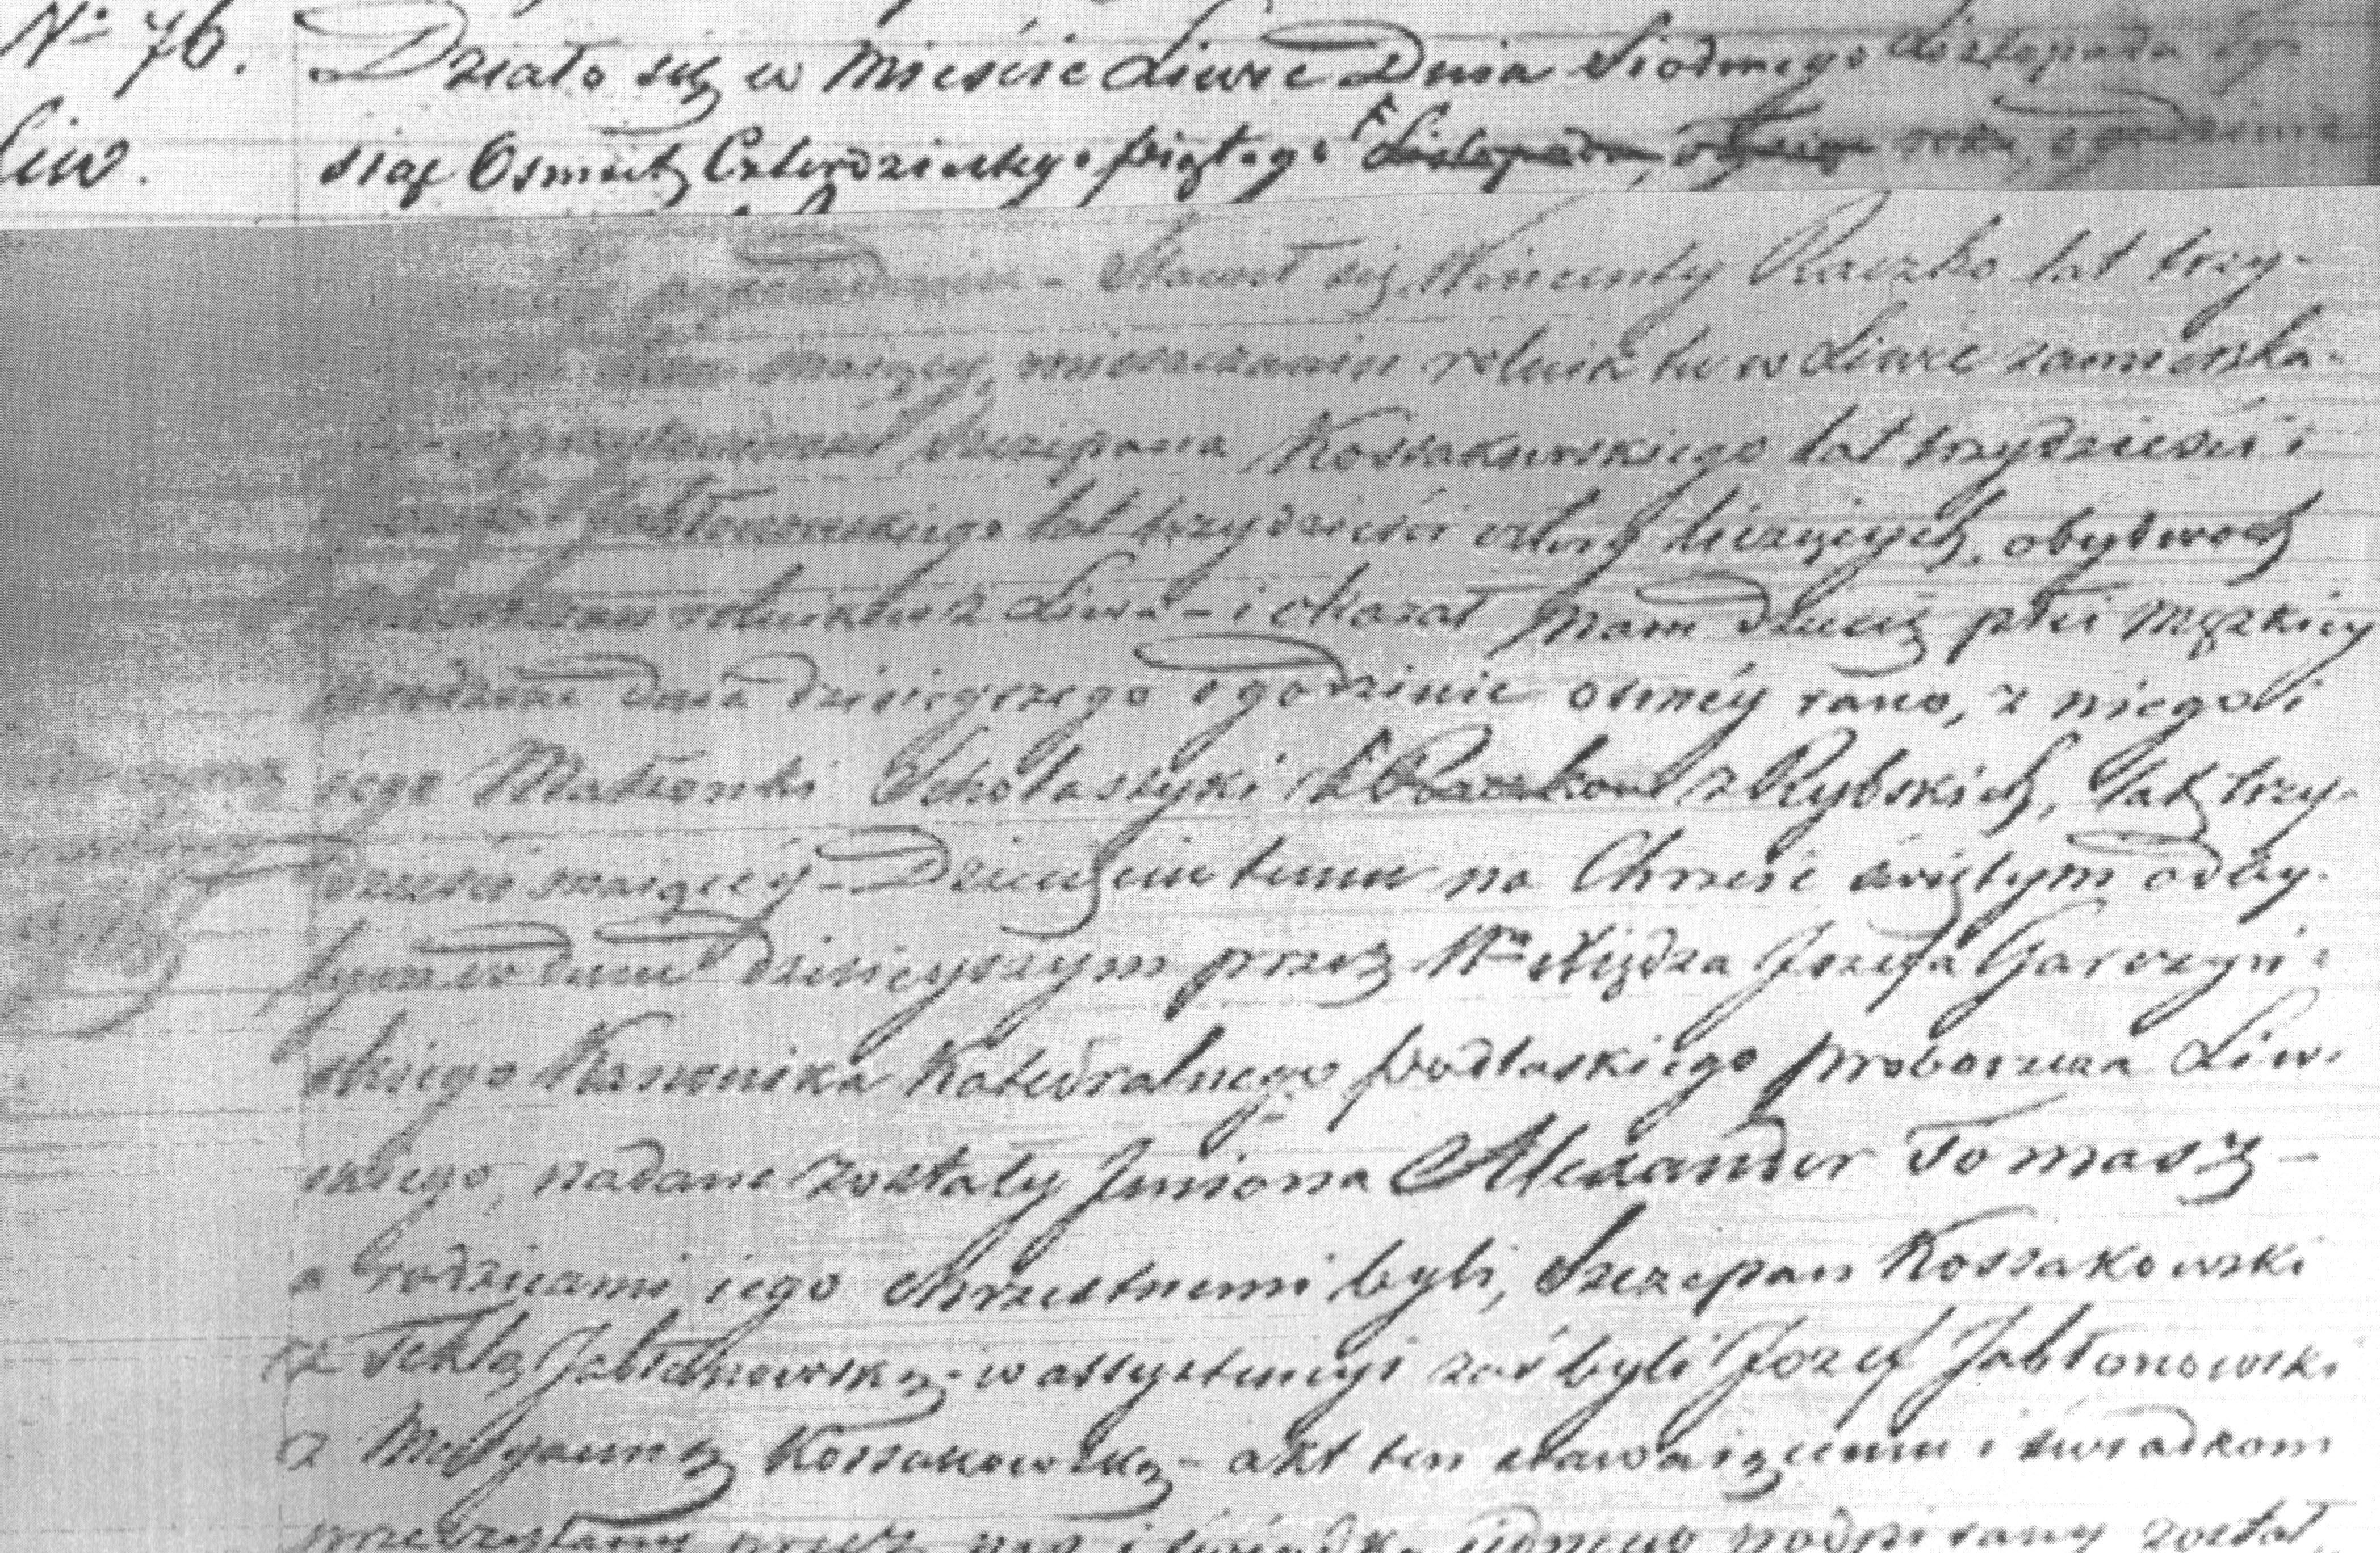 No 76. Działo się w Mieście Liwie Dnia Siodmego Listopada ty-
Liw. siąc Osmset Czterdziestego piątego Listopada, roku, o godzinie
- Stawił się Wincenty Raczko lat trzy-
maiący, mieszczanin rolnik tu w Liwie zamieszka-
Szczepana Kossakowskiego lat trzydzieści i
Jabłonowskiego lat trzydzieści cztery liczących, obydwoch
rolnikow z Liwa - i okazał nam Dziecię płci męzkiey
urodzone dnia dzisieyszego o godzinie osmey rano, z niego i
iego Małżonki Scholastyki Raczkow z Rybskich, lat trzy-
dzieści maiącey - Dziecięciu temu na Chrzcie świętym odby-
tym w dniu dzisieyszym przez Wgo Xiędza Jozefa Garczyń-
skiego Kanonika Katedralnego podlaskiego proboszcza Liw-
skiego, nadane zostały Jmiona Alexander Tomasz -
a rodzicami iego chrzestnemi byli, Szczepan Kossakowski
z Teklą Jabłonowską - w assystencyi zaś byli Jozef Jabłonowski
z Maryanną Kossakowską - akt ten stawaiącemu i świadkom
przeczytany przez nas i podpisany został